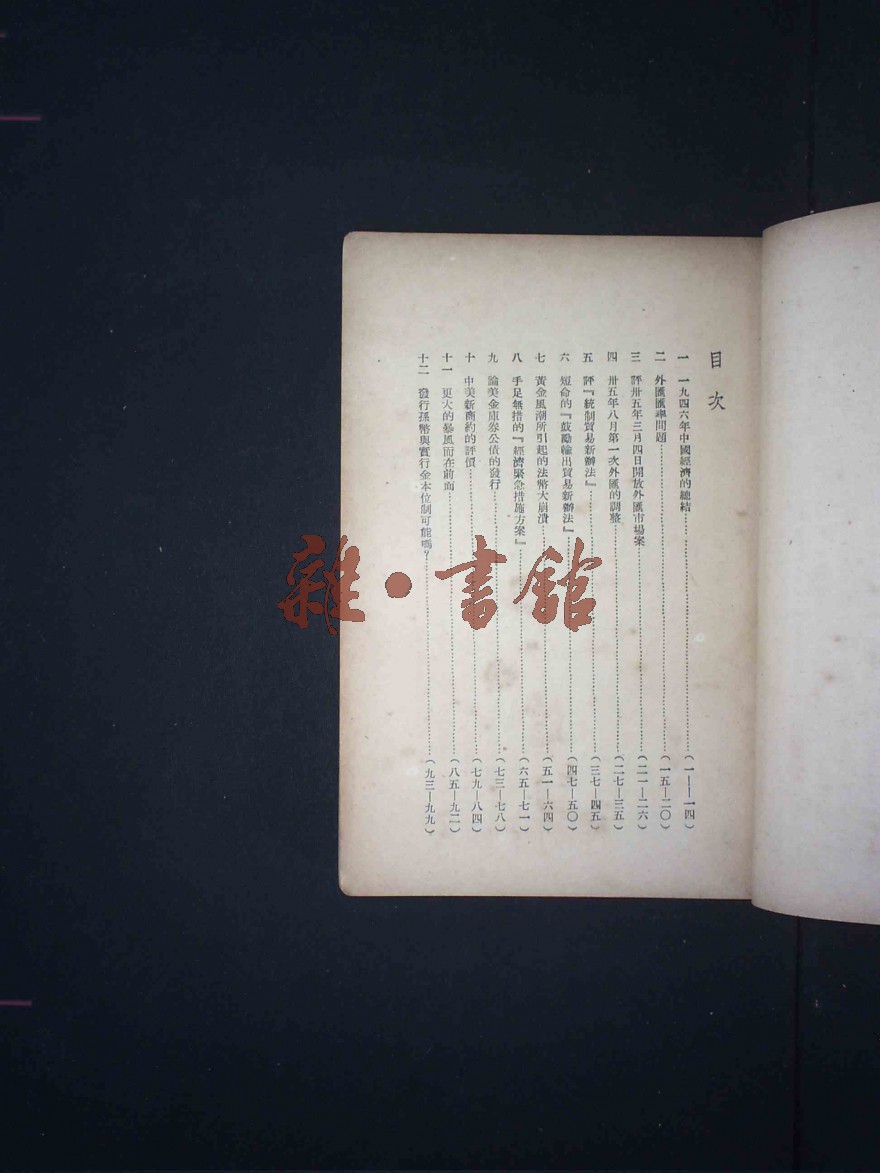 目次
一 一九四六年中國經濟的總結……(一——一四)
二 外匯匯率問題……(一五—二〇)
三 評卅五年三月四日開放外匯市場案……(二一—二六)
四 卅五年八月第一次外匯的調整……(二七—三五)
五 評『統制貿易新辦法』……(三七—四五)
六 短命的『鼓勵輸出貿易新辦法』……(四七—五〇)
七 黃金風潮所引起的法幣大崩潰……(五一—六四)
八 手足無措的『經濟緊急措施方案』……(六五—七一)
九 論美金庫券公債的發行……(七三—七八)
十 中美新商約的評價……(七九—八四)
十一 更大的暴風雨在前面……(八五—九二)
十二 發行孫幣與實行金本位制可能嗎?……(九三—九九)
雜·書館